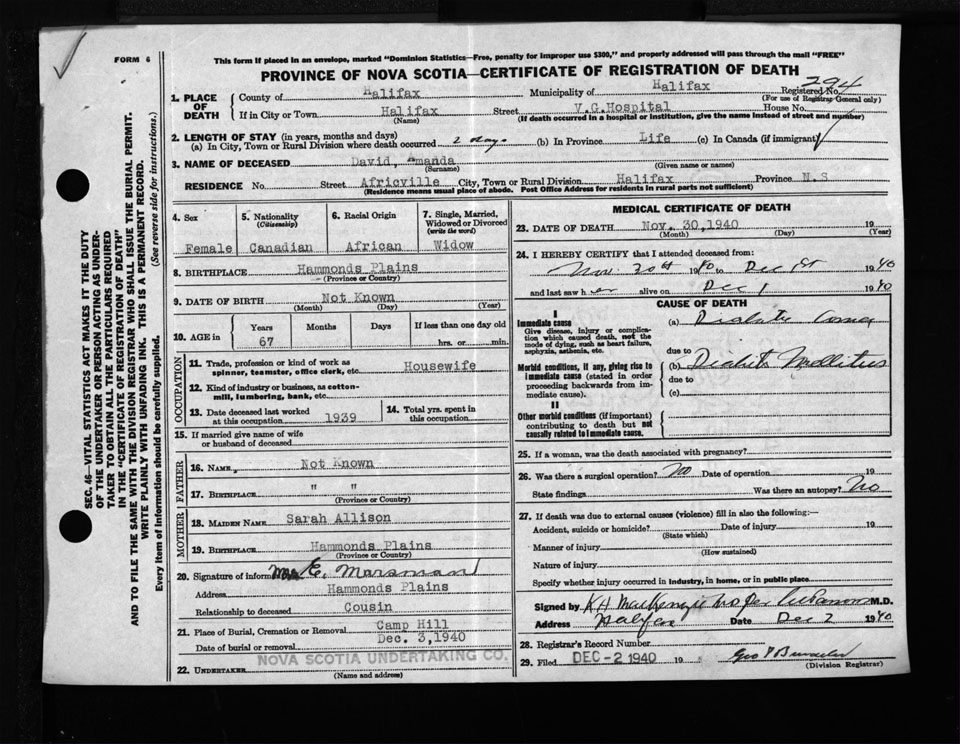 FORM 6
This form if placed in an envelope, marked "Dominion Statistics—Free, penalty for improper use $300," and properly addressed will pass through the mail "FREE"
PROVINCE OF NOVA SCOTIA—CERTIFICATE OF REGISTRATION OF DEATH
294
1. PLACE OF DEATH County of Halifax Municipality of Halifax Registered No.
(For use of Registrar General only)
If in City or Town Halifax Street V.G.Hospital House No.
(Name) (If death occurred in a hospital or institution, give the name instead of street and number)
2. LENGTH OF STAY (in years, months and days)
(a) In City, Town or Rural Division where death occurred 2 days (b) In Province Life (c) In Canada (if immigrant)
3. NAME OF DECEASED David, Amanda
(Surname) (Given name or names)
RESIDENCE No Street Africville City, Town or Rural Division Halifax Province N.S
(Residence means usual place of abode. Post Office Address for residents in rural parts not sufficient)
4. Sex Female
5. Nationality (Citizenship) Canadian
6. Racial Origin African
7. Single, Married, Widowed or Divorced (write the word) Widow
8. BIRTHPLACE Hammonds Plains
(Province or Country)
9. DATE OF BIRTH Not Known
(Month) (Day) (Year)
10. AGE in Years 67 Months Days If less than one day old hrs. or min.
OCCUPATION
11. Trade, profession or kind of work as spinner, teamster, office clerk, etc. Housewife
12. Kind of industry or business, as cotton-mill, lumbering, bank, etc.
13. Date deceased last worked at this occupation 1939
14. Total yrs. spent in this occupation
15. If married give name of wife or husband of deceased
FATHER
16. NAME Not Known
17. BIRTHPLACE " "
(Province or Country)
MOTHER
18. MAIDEN NAME Sarah Allison
19. BIRTHPLACE Hammonds Plains
(Province or Country)
20. Signature of informant Mrs E. Marsman
Address Hammonds Plains
Relationship to deceased Cousin
21. Place of Burial, Cremation or Removal Camp Hill
Date of burial or removal Dec. 3,1940
22. UNDERTAKER NOVA SCOTIA UNDERTAKING CO.
(Name and address)
MEDICAL CERTIFICATE OF DEATH
23. DATE OF DEATH Nov. 30,1940 19
(Month) (Day) (Year)
24. I HEREBY CERTIFY that I attended deceased from:
Nov. 30th 1940 to Dec 1st 1940
and last saw h er alive on Dec 1 1940
CAUSE OF DEATH
I
Immediate cause
Give disease, injury or complication which caused death, not the mode of dying, such as heart failure, asphyxia, asthenia, etc.
(a) Diabetic Coma
due to
Morbid conditions, if any, giving rise to immediate cause (stated in order proceeding backwards from immediate cause).
(b) Diabetes Mellitus
due to
(c)
II
Other morbid conditions (if important) contributing to death but not causally related to immediate cause.
25. If a woman, was the death associated with pregnancy?
26. Was there a surgical operation? No Date of operation 19
State findings Was there an autopsy? No
27. If death was due to external causes (violence) fill in also the following:—
Accident, suicide or homicide? Date of injury 19
(State which)
Manner of injury
(How sustained)
Nature of injury
Specify whether injury occurred in industry, in home, or in public place
Signed by K H MacKenzie M.D.
Address Halifax Date Dec 2 1940
28. Registrar's Record Number
29. Filed DEC - 2 1940 19
(Division Registrar)
SEC. 46—VITAL STATISTICS ACT MAKES IT THE DUTY
OF THE UNDERTAKER OR PERSON ACTING AS UNDER-
TAKER TO OBTAIN ALL THE PARTICULARS REQUIRED
IN THE "CERTIFICATE OF REGISTRATION OF DEATH"
AND TO FILE THE SAME WITH THE DIVISION REGISTRAR WHO SHALL ISSUE THE BURIAL PERMIT.
WRITE PLAINLY WITH UNFADING INK. THIS IS A PERMANENT RECORD.
Every item of Information should be carefully supplied. (See reverse side for instructions.)